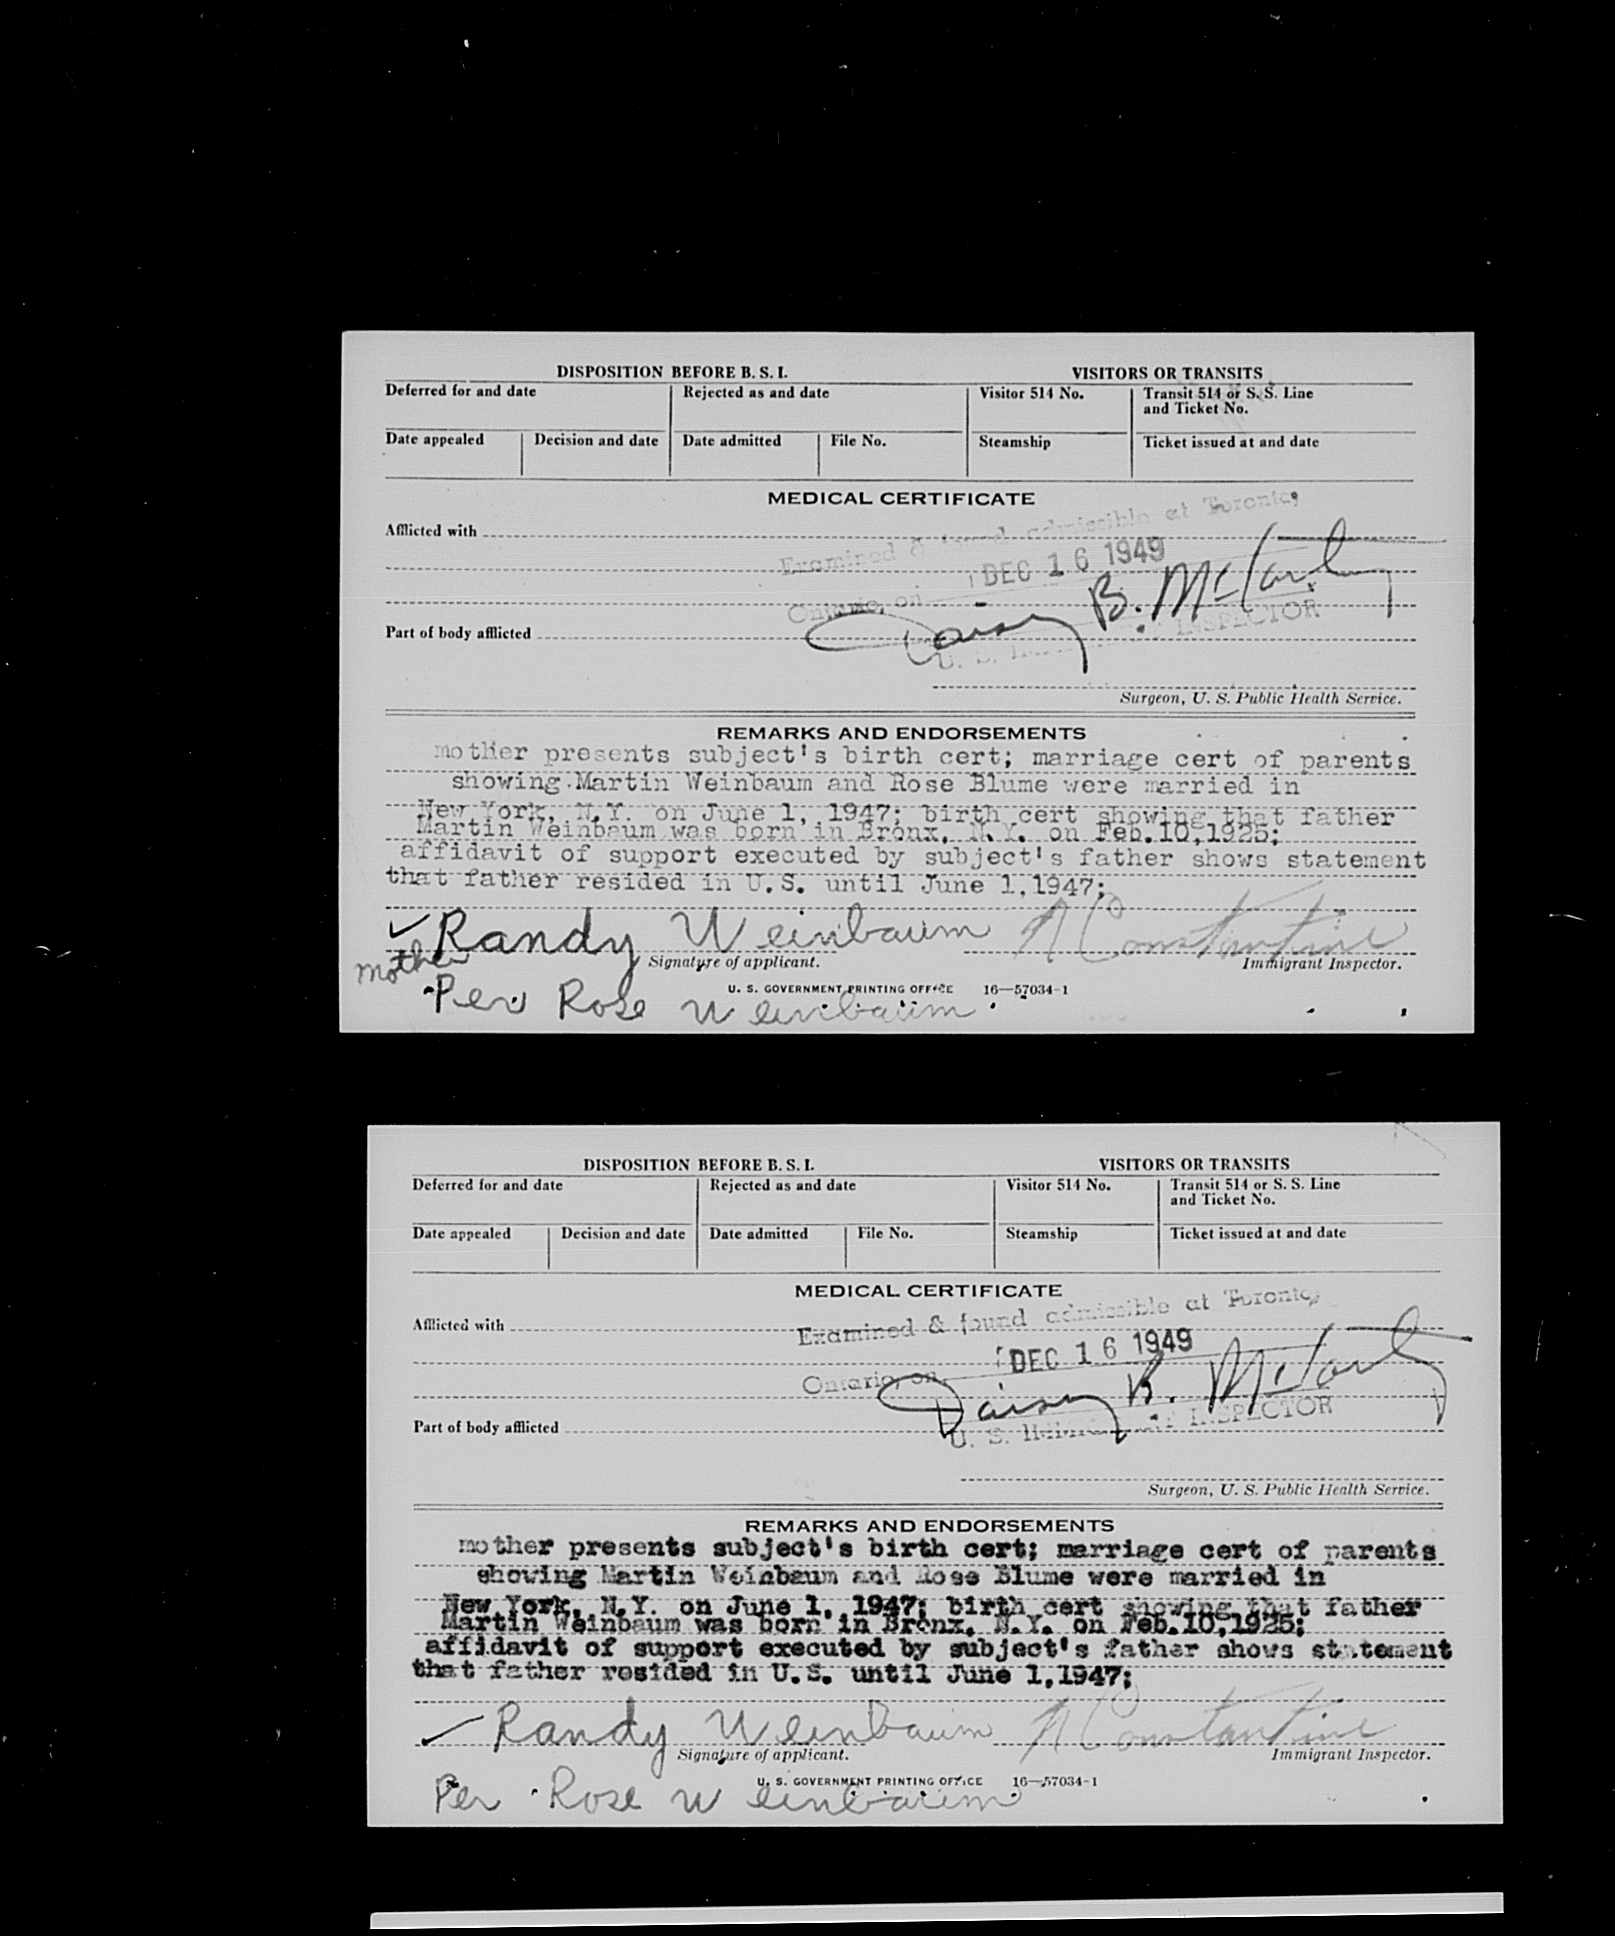 DISPOSITION BEFORE B. S. I.
VISITORS OR TRANSITS
Deferred for and date
Rejected as and date
Visitor 514 No.
Transit 514 or S. S. Line
and Ticket No.
Date appealed
Decision and date
Date admitted
File No.
Steamship
Ticket issued at and date
MEDICAL CERTIFICATE
Examined & found admissible at Toronto,
Afflicted with
DEC 16 1949
Ontario, on
Daisy B. McCarthy
U. S. INSPECTOR
Part of body afflicted
Surgeon, U. S. Public Health Service.
REMARKS AND ENDORSEMENTS
mother presents subject's birth cert; marriage cert of parents
showing Martin Weinbaum and Rose Blume were married in
New York, N.Y. on June 1, 1947; birth cert showing that father
Martin Weinbaum was born in Bronx, N.Y. on Feb.10,1925;
affidavit of support executed by subject's father shows statement
that father resided in U.S. until June 1,1947;
✓ Randy Weinbaum N Constantine
mother
Signature of applicant.
Immigrant Inspector.
Per Rose Weinbaum
U. S. GOVERNMENT PRINTING OFFICE 16—57034-1
DISPOSITION BEFORE B. S. I.
VISITORS OR TRANSITS
Deferred for and date
Rejected as and date
Visitor 514 No.
Transit 514 or S. S. Line
and Ticket No.
Date appealed
Decision and date
Date admitted
File No.
Steamship
Ticket issued at and date
MEDICAL CERTIFICATE
Examined & found admissible at Toronto,
Afflicted with
DEC 16 1949
Ontario, on
Daisy B. McCarthy
U. S. INSPECTOR
Part of body afflicted
Surgeon, U. S. Public Health Service.
REMARKS AND ENDORSEMENTS
mother presents subject's birth cert; marriage cert of parents
showing Martin Weinbaum and Rose Blume were married in
New York, N.Y. on June 1, 1947; birth cert showing that father
Martin Weinbaum was born in Bronx, N.Y. on Feb.10,1925;
affidavit of support executed by subject's father shows statement
that father resided in U.S. until June 1,1947;
✓ Randy Weinbaum N Constantine
Signature of applicant.
Immigrant Inspector.
Per Rose Weinbaum
U. S. GOVERNMENT PRINTING OFFICE 16—57034-1